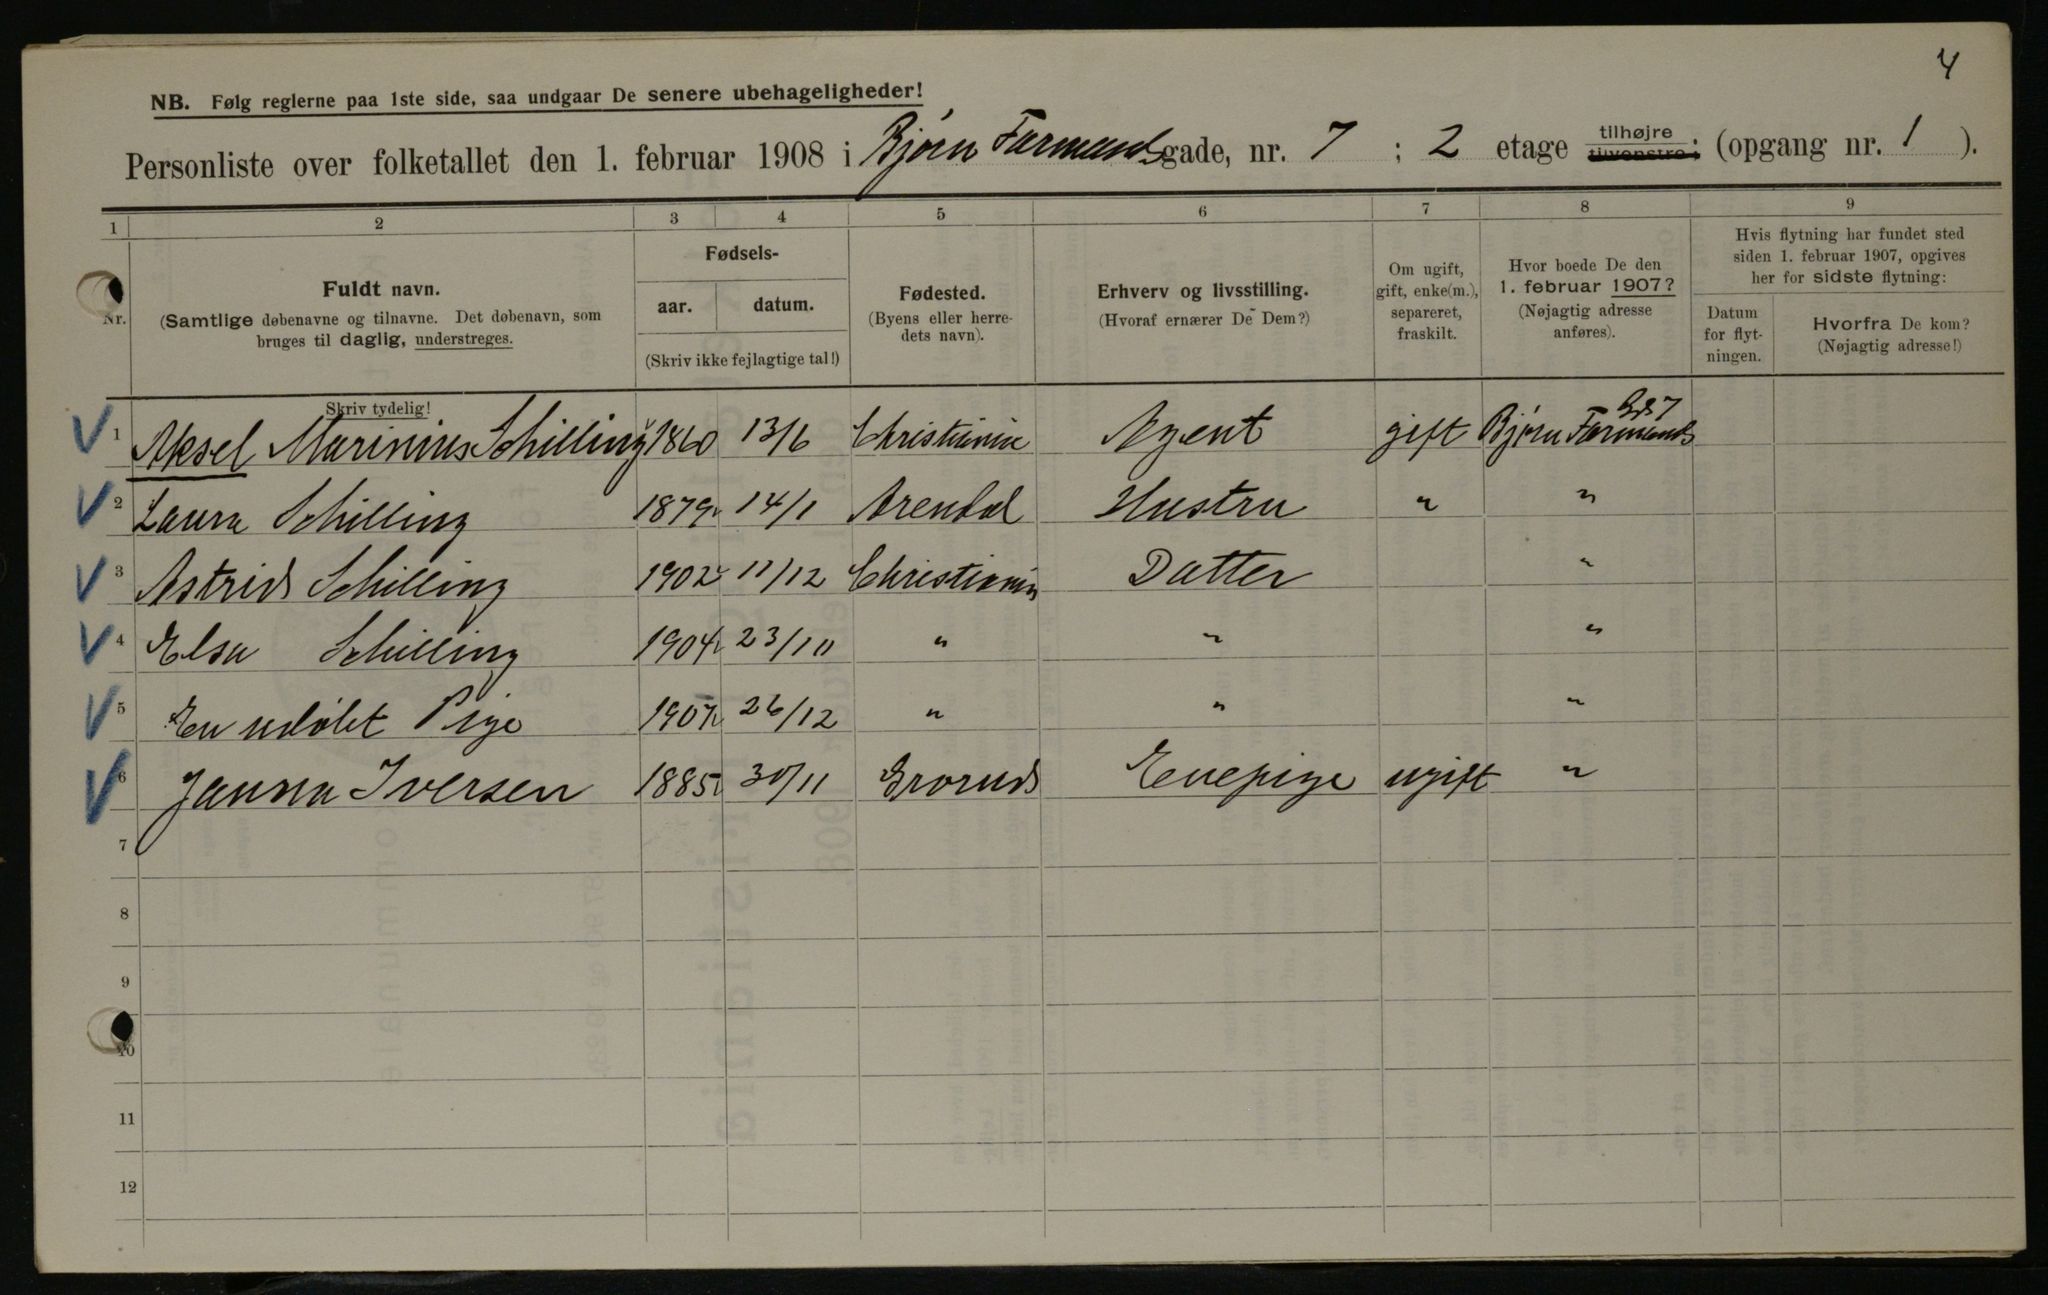 4
NB. Følg reglerne paa 1ste side, saa undgaar De senere ubehageligheder!
Personliste over folketallet den 1. februar 1908 i Bjørn Farmands gade, nr. 7 ; 2 etage tilhøjre tilvenstre; (opgang nr. 1 ).
1 2 3 4 5 6 7 8 9
Nr.
Fuldt navn.
(Samtlige døbenavne og tilnavne. Det døbenavn, som
bruges til daglig, understreges.
Skriv tydelig!
Fødsels-
aar. datum.
(Skriv ikke fejlagtige tal!)
Fødested.
(Byens eller herre-
dets navn).
Erhverv og livsstilling.
(Hvoraf ernærer De Dem?)
Om ugift,
gift, enke(m.),
separeret,
fraskilt.
Hvor boede De den
1. februar 1907?
(Nøjagtig adresse
anføres).
Hvis flytning har fundet sted
siden 1. februar 1907, opgives
her for sidste flytning:
Datum
for flyt-
ningen.
Hvorfra De kom?
(Nøjagtig adresse!)
1 Aksel Marinius Schilling 1860 13/6 Christiania Agent gift Bjørn Farmands Gd 7
2 Laura Schilling 1879 14/1 Arendal Hustru " "
3 Astrid Schilling 1902 11/12 Christiania Datter "
4 Elsa Schilling 1904 23/10 " " "
5 En udøbt Pige 1907 26/12 " " "
6 Janna Iversen 1885 30/11 Grorud Enepige ugift "
7
8
9
10
11
12